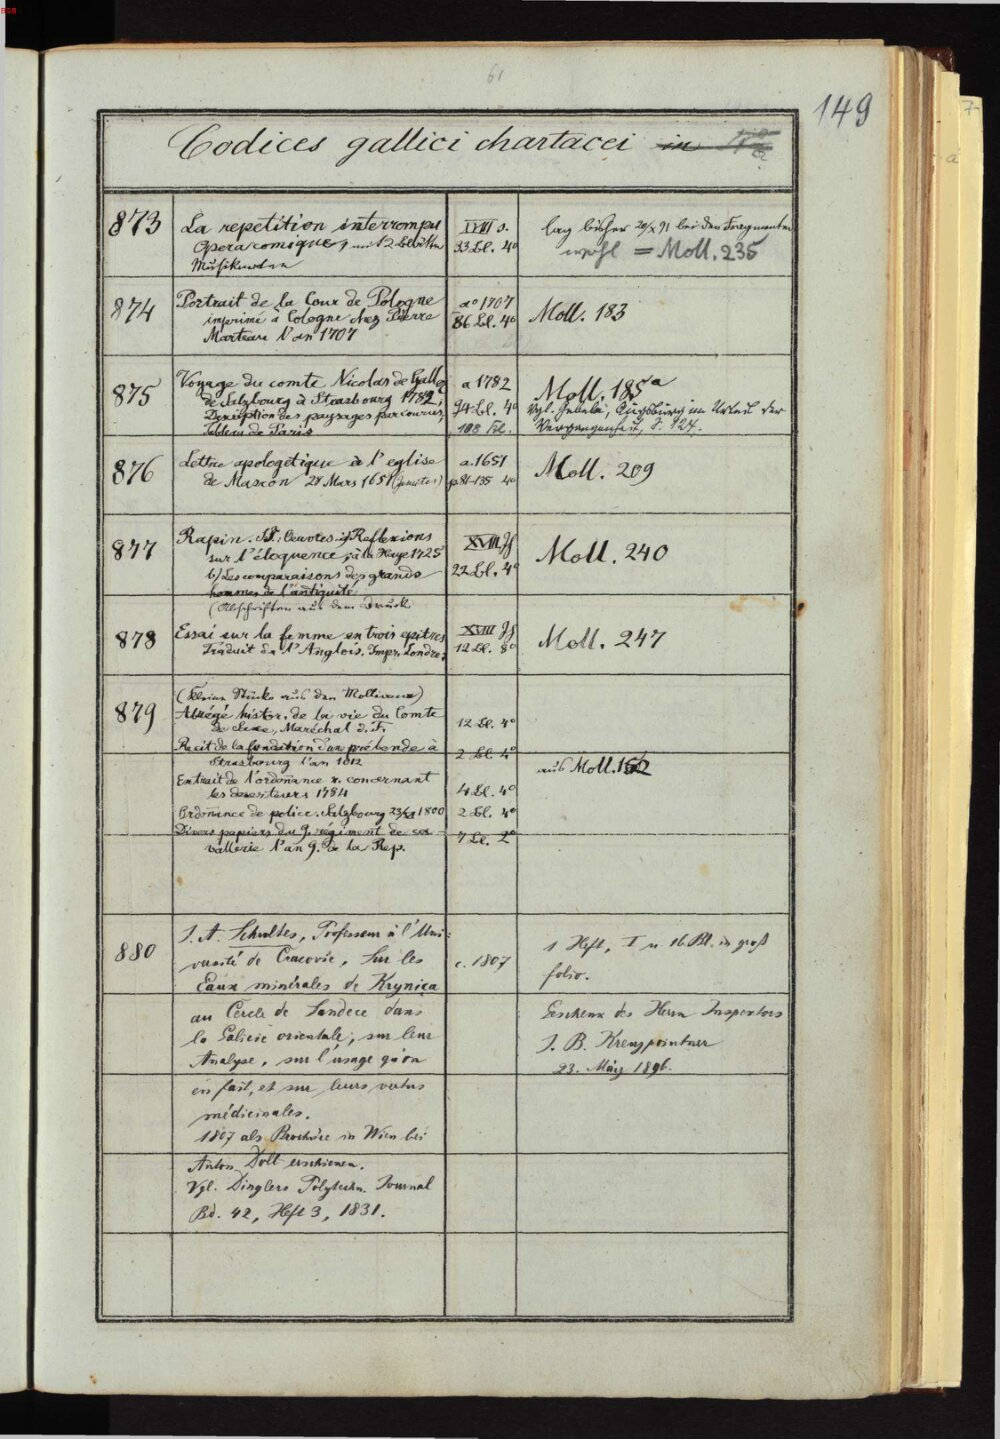 BSB
61
149
7
Codices gallici chartacei in
873
La repetition interrompu
Opera comique, mit 12 Blättern
Musiknoten
XVIII s.
33 Bl. 4°
lag bisher 29/X 91 bei den Fragmenten
wohl = Moll. 235
874
Portrait de la Cour de Pologne
imprimé à Cologne chez Pierre
Marteau l'an 1707
a° 1707
86 Bl. 4°
Moll. 183
875
Voyage du comte Nicolas de
de Salzbourg à Strasbourg 1782,
Description des paysages parcourus,
Tableau de Paris
a 1782
94 Bl. 4°
108 Bl.
Moll. 185a
Vgl. Salzburg im Urteil der
Vergangenheit, S. 124.
876
Lettre apologetique à l'eglise
de Mascon 28 Mars 1651 (Jesuites)
a. 1651
p. 81-135 4°
Moll. 209
877
Rapin. Oeuvres a) Reflexions
sur l'éloquence, à la Haye 1725
b) Les comparaisons des grands
hommes de l'antiquité
(Abschriften aus dem Druck
XVIII Jh
22 Bl. 4°
Moll. 240
878
Essai sur la femme en trois epitres
Traduit de l'Anglois. Impr. Londres
XVIII Jh
12 Bl. 8°
Moll. 247
879
(Kleine Stücke aus den Mollianis)
Abrégé histor. de la vie du Comte
de Saxe, Maréchal d. F.
12 Bl. 4°
Recit de la fondation d'un prébende à
Strasbourg l'an 1012
2 Bl. 4°
aus Moll. 152
Extrait de l'ordonnance r. concernant
les deserteurs 1784
4 Bl. 4°
Ordonnance de police. Salzbourg 1800
2 Bl. 4°
Divers papiers du 9. régiment de ca-
vallerie l'an 9. de la Rep.
7 Bl. 2°
880
J. A. Schultes, Professeur à l'Uni-
versité de Cracovie, Sur les
Eaux minérales de Krynica
au Cercle de Sandece dans
la Galicie orientale; sur leur
Analyse, sur l'usage qu'on
en fait, et sur leurs vertus
médicinales.
1807 als Brochüre in Wien bei
Anton Doll erschienen.
Vgl. Dinglers Polytechn. Journal
Bd. 42, Heft 3, 1831.
c. 1807
1 Heft, I u. 16 Bl. in groß
folio.
Geschenk des Herrn Inspektors
J. B. Kreuzpointner
23. März 1896.